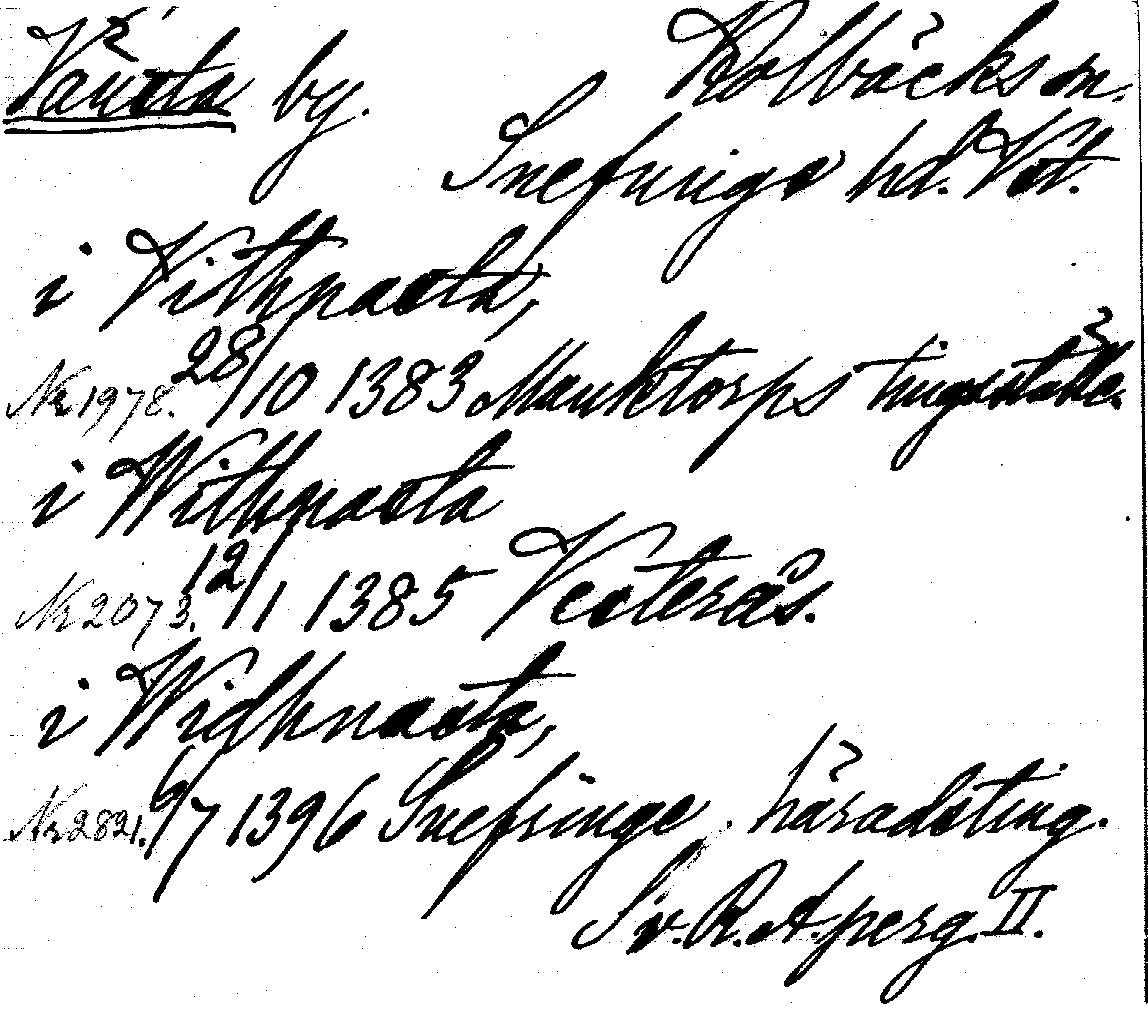 Vänsta by. Kolbäcks sn.
Snefringe hd. Vst.
i Vithnasta,
Nr 1978. 28/10 1383 Munktorps tingsställe.
i Withnasta
Nr 2073. 12/1 1385 Vesterås.
i Widhnasta,
Nr 2821. 6/7 1396 Snefringe häradsting.
Sv. R. A. perg. II.